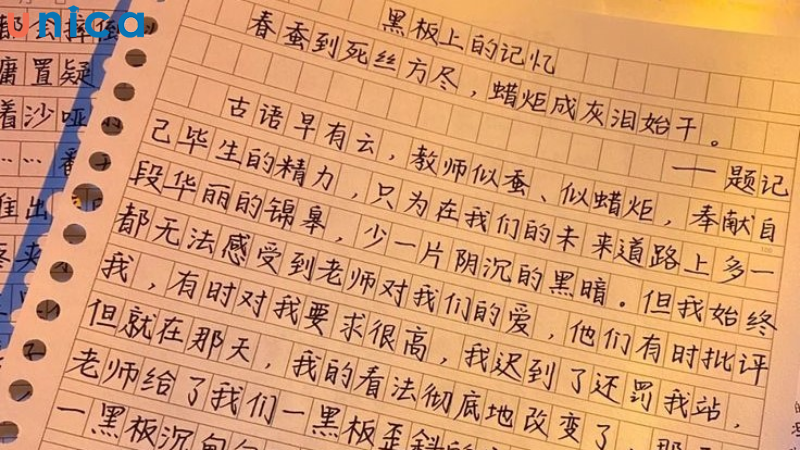 unica
摔倒
庸置疑
着沙哑
……
黑板上的记忆
春蚕到死丝方尽，蜡炬成灰泪始干。
——题记
古语早有云，教师似蚕、似蜡炬，奉献自
己毕生的精力，只为在我们的未来道路上多一
段华丽的锦皋，少一片阴沉的黑暗。但我始终
都无法感受到老师对我们的爱，他们有时批评
我，有时对我要求很高，我迟到了还罚我站，
但就在那天，我的看法彻底地改变了，那
老师给了我们一黑板歪斜
一黑板沉甸